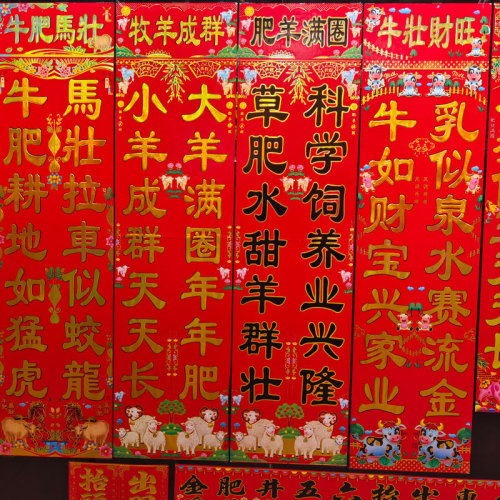 牛肥馬壯
馬壯拉車似蛟龍
牛肥耕地如猛虎
牧羊成群
大羊满圈年年肥
小羊成群天天长
肥羊满圈
科学饲养业兴隆
草肥水甜羊群壮
牛壯財旺
乳似泉水赛流金
牛如财宝兴家业